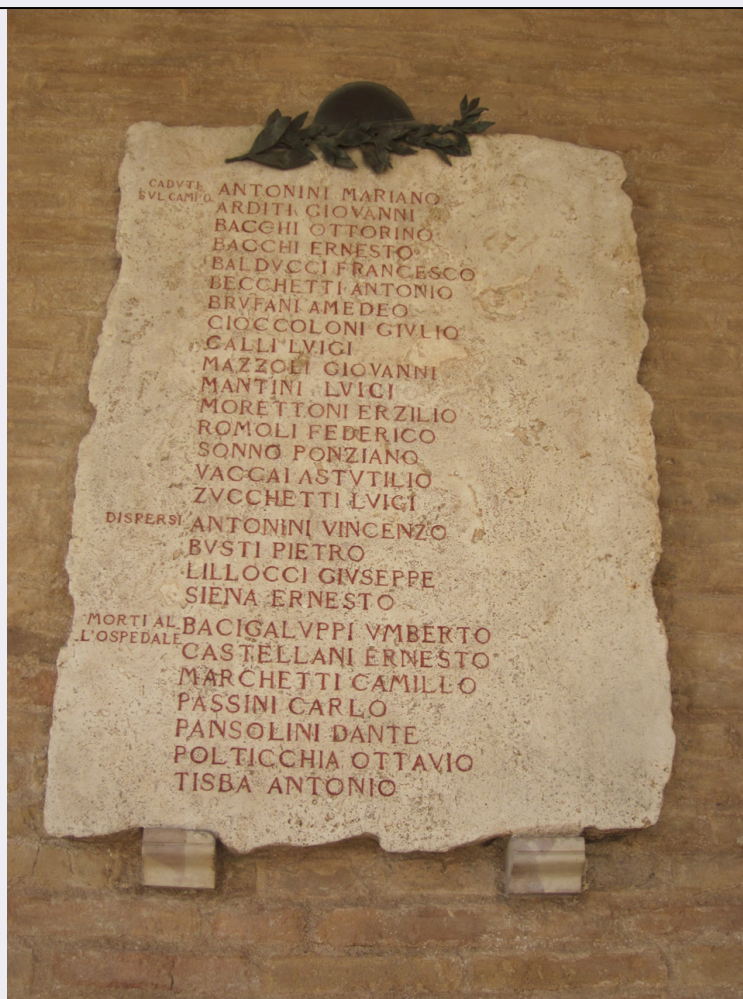 CADVTI SVL CAMPO
ANTONINI MARIANO
ARDITI GIOVANNI
BACCHI OTTORINO
BACCHI ERNESTO
BALDVCCI FRANCESCO
BECCHETTI ANTONIO
BRVFANI AMEDEO
CIOCCOLONI GIVLIO
GALLI LVIGI
MAZZOLI GIOVANNI
MANTINI LVIGI
MORETTONI ERZILIO
ROMOLI FEDERICO
SONNO PONZIANO
VACCAI ASTVTILIO
ZVCCHETTI LVIGI
DISPERSI
ANTONINI VINCENZO
BVSTI PIETRO
LILLOCCI GIVSEPPE
SIENA ERNESTO
MORTI AL
L'OSPEDALE
BACIGALVPPI VMBERTO
CASTELLANI ERNESTO
MARCHETTI CAMILLO
PASSINI CARLO
PANSOLINI DANTE
POLTICCHIA OTTAVIO
TISBA ANTONIO